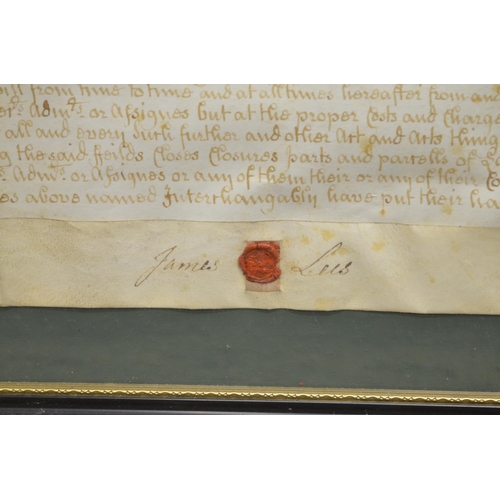 from time to time and at all times hereafter from
Admrs. or Assignes but at the proper Costs and Charge
all and every such further and other Act and Acts thing
the said feilds Closes Closures parts and parcells of
Admrs. or Assignes or any of them their or any of their Co
es above named Interchangably have put their ha
James Lees